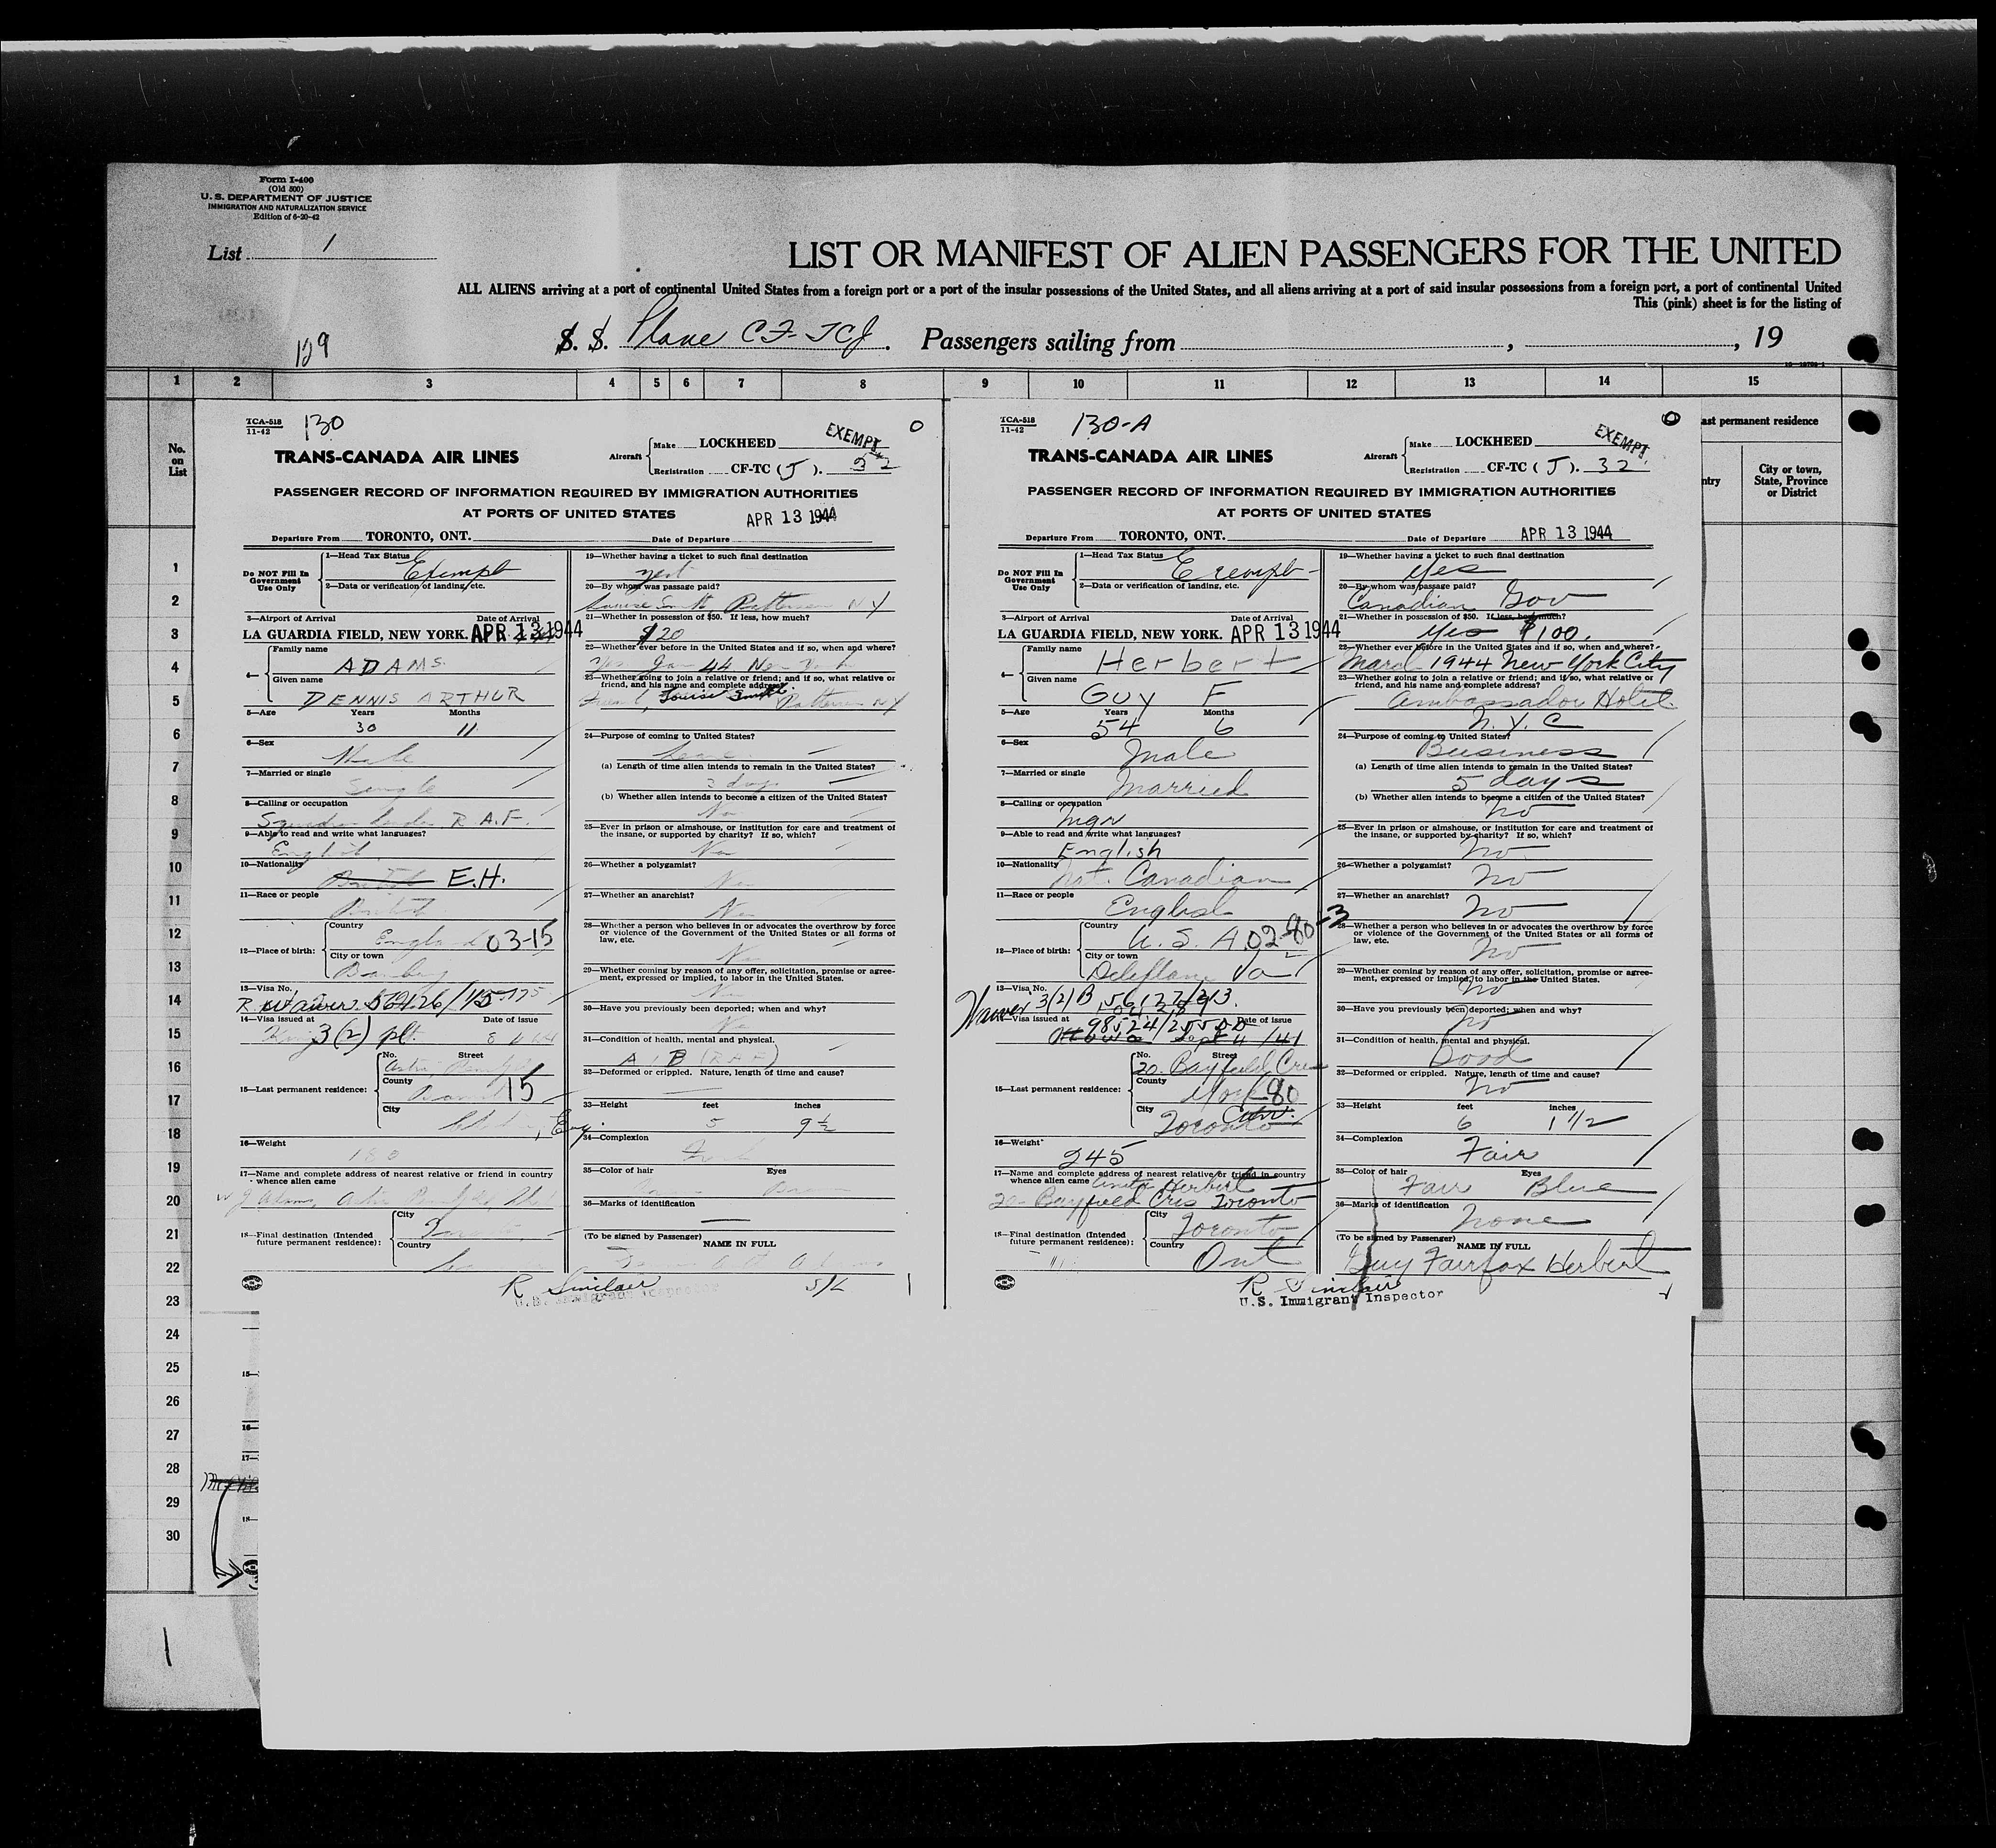 Form I-400
(Old 500)
U. S. DEPARTMENT OF JUSTICE
IMMIGRATION AND NATURALIZATION SERVICE
Edition of 6-20-42
List 1
LIST OR MANIFEST OF ALIEN PASSENGERS FOR THE UNITED
ALL ALIENS arriving at a port of continental United States from a foreign port or a port of the insular possessions of the United States, and all aliens arriving at a port of said insular possessions from a foreign port, a port of continental United
This (pink) sheet is for the listing of
129
S. S. Plane CF-TCJ. Passengers sailing from , , 19
1 2 3 4 5 6 7 8 9 10 11 12 13 14 15
No. on List
ast permanent residence
ntry
City or town, State, Province or District
1
2
3
4
5
6
7
8
9
10
11
12
13
14
15
16
17
18
19
20
21
22
23
24
25
26
27
28
29
30
TCA-518
11-42
130
O
TRANS-CANADA AIR LINES
Aircraft
Make LOCKHEED
EXEMPT
Registration CF-TC (J). 32
PASSENGER RECORD OF INFORMATION REQUIRED BY IMMIGRATION AUTHORITIES
AT PORTS OF UNITED STATES
APR 13 1944
Departure From TORONTO, ONT. Date of Departure
Do NOT Fill In Government Use Only
1—Head Tax Status Exempt
2—Data or verification of landing, etc.
3—Airport of Arrival Date of Arrival
LA GUARDIA FIELD, NEW YORK. APR 13 1944
4— Family name
ADAMS
Given name
DENNIS ARTHUR
5—Age Years Months
30 11
6—Sex
Male
7—Married or single
Single
8—Calling or occupation
Squadron Leader R.A.F.
9—Able to read and write what languages?
English
10—Nationality
British E.H.
11—Race or people
British
12—Place of birth:
Country
England 03-15
City or town
13—Visa No.
R. Waiver
14—Visa issued at Date of issue
3(2) plt.
15—Last permanent residence:
No. Street
County
15
City
Eng.
16—Weight
180
17—Name and complete address of nearest relative or friend in country
whence alien came
18—Final destination (Intended
future permanent residence):
City
Country
19—Whether having a ticket to such final destination
yes
20—By whom was passage paid?
Louise Smith Patterson NY
21—Whether in possession of $50. If less, how much?
$20
22—Whether ever before in the United States and if so, when and where?
Yes Jan 44 New York
23—Whether going to join a relative or friend; and if so, what relative or
friend, and his name and complete address?
Friend, Louise Smith Patterson NY
24—Purpose of coming to United States?
Leave
(a) Length of time alien intends to remain in the United States?
3 days
(b) Whether alien intends to become a citizen of the United States?
No
25—Ever in prison or almshouse, or institution for care and treatment of
the insane, or supported by charity? If so, which?
No
26—Whether a polygamist?
No
27—Whether an anarchist?
No
28—Whether a person who believes in or advocates the overthrow by force
or violence of the Government of the United States or all forms of
law, etc.
No
29—Whether coming by reason of any offer, solicitation, promise or agree-
ment, expressed or implied, to labor in the United States.
No
30—Have you previously been deported; when and why?
No
31—Condition of health, mental and physical.
A I B (RAF)
32—Deformed or crippled. Nature, length of time and cause?
33—Height feet inches
5 9½
34—Complexion
35—Color of hair Eyes
36—Marks of identification
(To be signed by Passenger)
NAME IN FULL
R Sinclair S/L
U.S. Immigrant Inspector
TCA-518
11-42
130-A
O
TRANS-CANADA AIR LINES
Aircraft
Make LOCKHEED
EXEMPT
Registration CF-TC (J). 32
PASSENGER RECORD OF INFORMATION REQUIRED BY IMMIGRATION AUTHORITIES
AT PORTS OF UNITED STATES
Departure From TORONTO, ONT. Date of Departure APR 13 1944
Do NOT Fill In Government Use Only
1—Head Tax Status Exempt
2—Data or verification of landing, etc.
3—Airport of Arrival Date of Arrival
LA GUARDIA FIELD, NEW YORK. APR 13 1944
4— Family name
Herbert
Given name
Guy F
5—Age Years Months
54 6
6—Sex
Male
7—Married or single
Married
8—Calling or occupation
Mgr
9—Able to read and write what languages?
English
10—Nationality
Nat. Canadian
11—Race or people
English
12—Place of birth:
Country
U. S. A. 02-80-3
City or town
Deleplane Va
13—Visa No.
Waiver 3(2)B
14—Visa issued at Date of issue
Ottawa Sept 11/41
15—Last permanent residence:
No. Street
20 Bayfield Cres
County
York 80
City
Toronto
16—Weight
245
17—Name and complete address of nearest relative or friend in country
whence alien came
Herbert
20 Bayfield Cres Toronto
18—Final destination (Intended
future permanent residence):
City
Toronto
Country
Ont
19—Whether having a ticket to such final destination
Yes
20—By whom was passage paid?
Canadian Gov
21—Whether in possession of $50. If less, how much?
Yes $100.
22—Whether ever before in the United States and if so, when and where?
March 1944 New York City
23—Whether going to join a relative or friend; and if so, what relative or
friend, and his name and complete address?
Ambassador Hotel
N.Y.C
24—Purpose of coming to United States?
Business
(a) Length of time alien intends to remain in the United States?
5 days
(b) Whether alien intends to become a citizen of the United States?
No
25—Ever in prison or almshouse, or institution for care and treatment of
the insane, or supported by charity? If so, which?
No
26—Whether a polygamist?
No
27—Whether an anarchist?
No
28—Whether a person who believes in or advocates the overthrow by force
or violence of the Government of the United States or all forms of
law, etc.
No
29—Whether coming by reason of any offer, solicitation, promise or agree-
ment, expressed or implied, to labor in the United States.
No
30—Have you previously been deported; when and why?
No
31—Condition of health, mental and physical.
Good
32—Deformed or crippled. Nature, length of time and cause?
No
33—Height feet inches
6 1 1/2
34—Complexion
Fair
35—Color of hair Eyes
Fair Blue
36—Marks of identification
None
(To be signed by Passenger)
NAME IN FULL
Guy Fairfax Herbert
R Sinclair
U.S. Immigrant Inspector
15—
16—
17—
18—
1